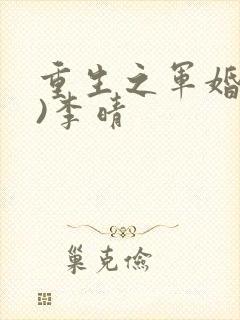 重生之军婚
)李晴
巢克俭